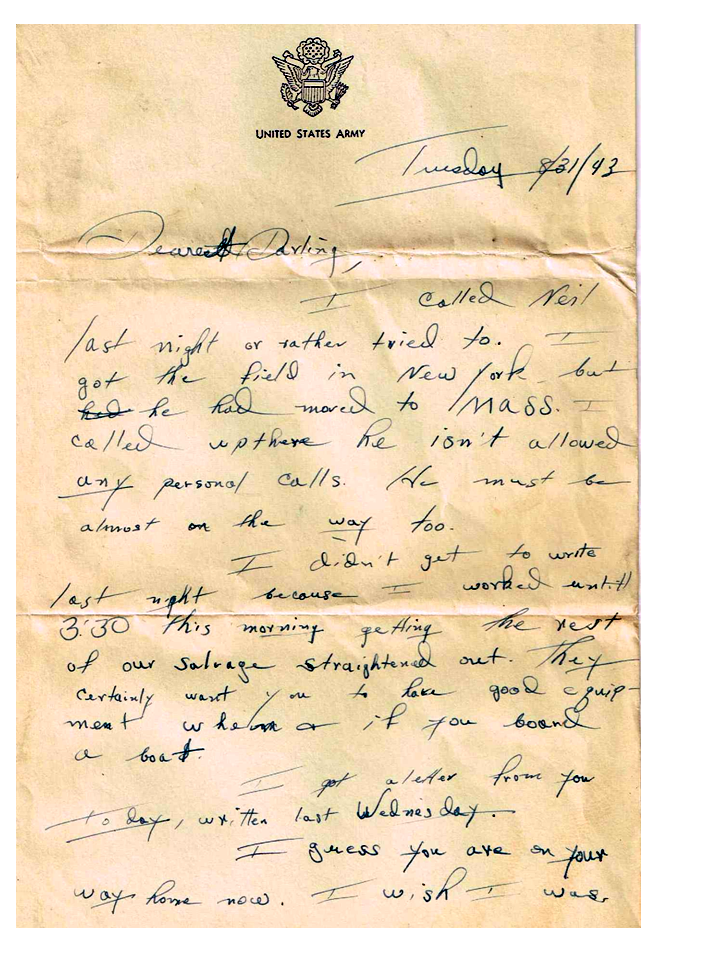 UNITED STATES ARMY
Tuesday 8/31/43
Dearest Darling,
I called Neil
last night or rather tried to. I
got the field in New York but
had he had moved to MASS. I
called up there he isn't allowed
any personal calls. He must be
almost on the way too.
I didn't get to write
last night because I worked until
3:30 this morning getting the rest
of our salvage straightened out. They
certainly want you to have good equip-
ment when or if you board
a boat.
I got a letter from you
today, written last Wednesday.
I guess you are on your
way home now. I wish I was.